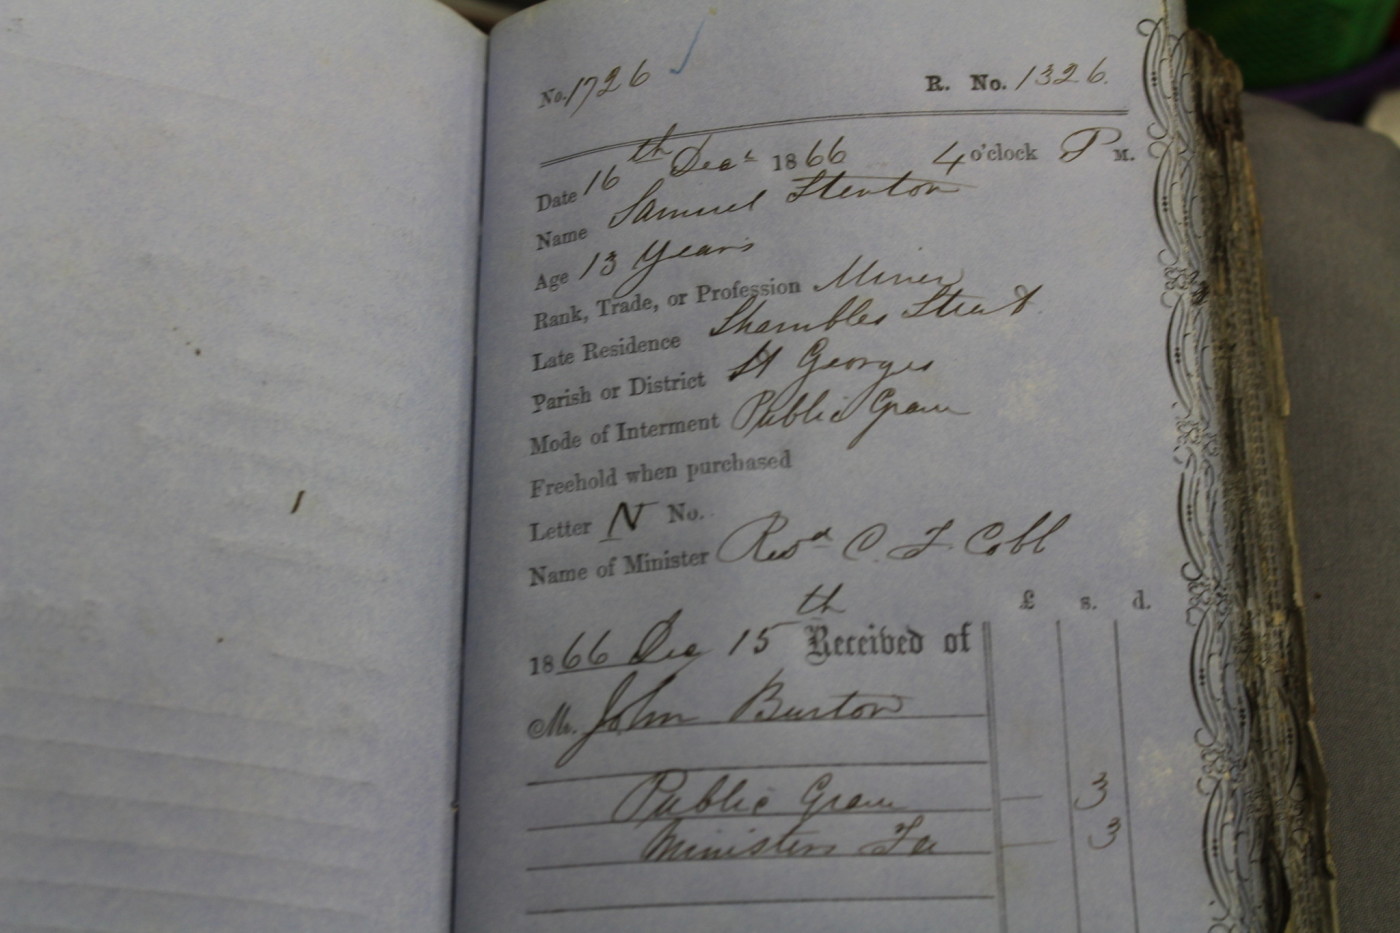 No. 1726 R. No. 1326.
Date 16th Decr 1866 4 o'clock P M.
Name Samuel Stenton
Age 13 Years
Rank, Trade, or Profession Miner
Late Residence Shambles Street
Parish or District St Georges
Mode of Interment Public Grave
Freehold when purchased
Letter N No.
Name of Minister Revd C. F. Cobb
£ s. d.
1866 Dec 15th Received of
Mr. John Burton
Public Grave — 3
Ministers Fee — 3